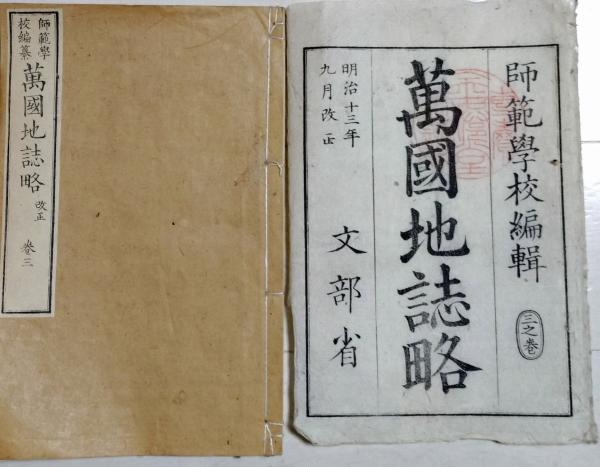 師範學
校編纂
萬國地誌略
改正
卷三
師範學校編輯
三之卷
萬國地誌略
明治十三年
九月改正
文部省